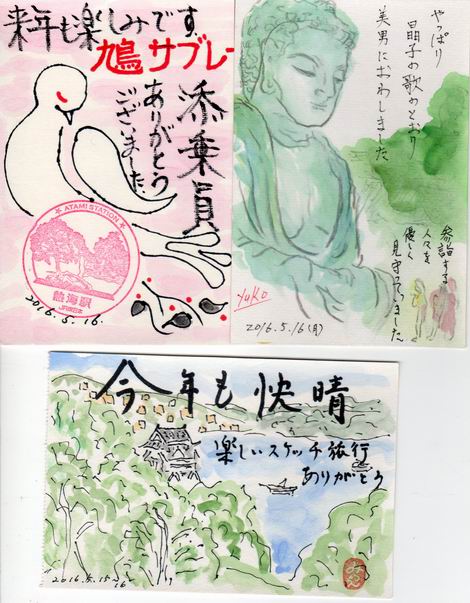 来年も楽しみです
鳩サブレー
添乗員
ありがとう
ございました
ATAMI STATION
熱海駅
JR東日本
2016.5.16.
やっぱり
晶子の歌のとおり
美男におわしました
参詣する
人々を
優しく
見守っていました
YUKO
2016.5.16(月)
今年も快晴
楽しいスケッチ旅行
ありがとう
2016.5.15~16